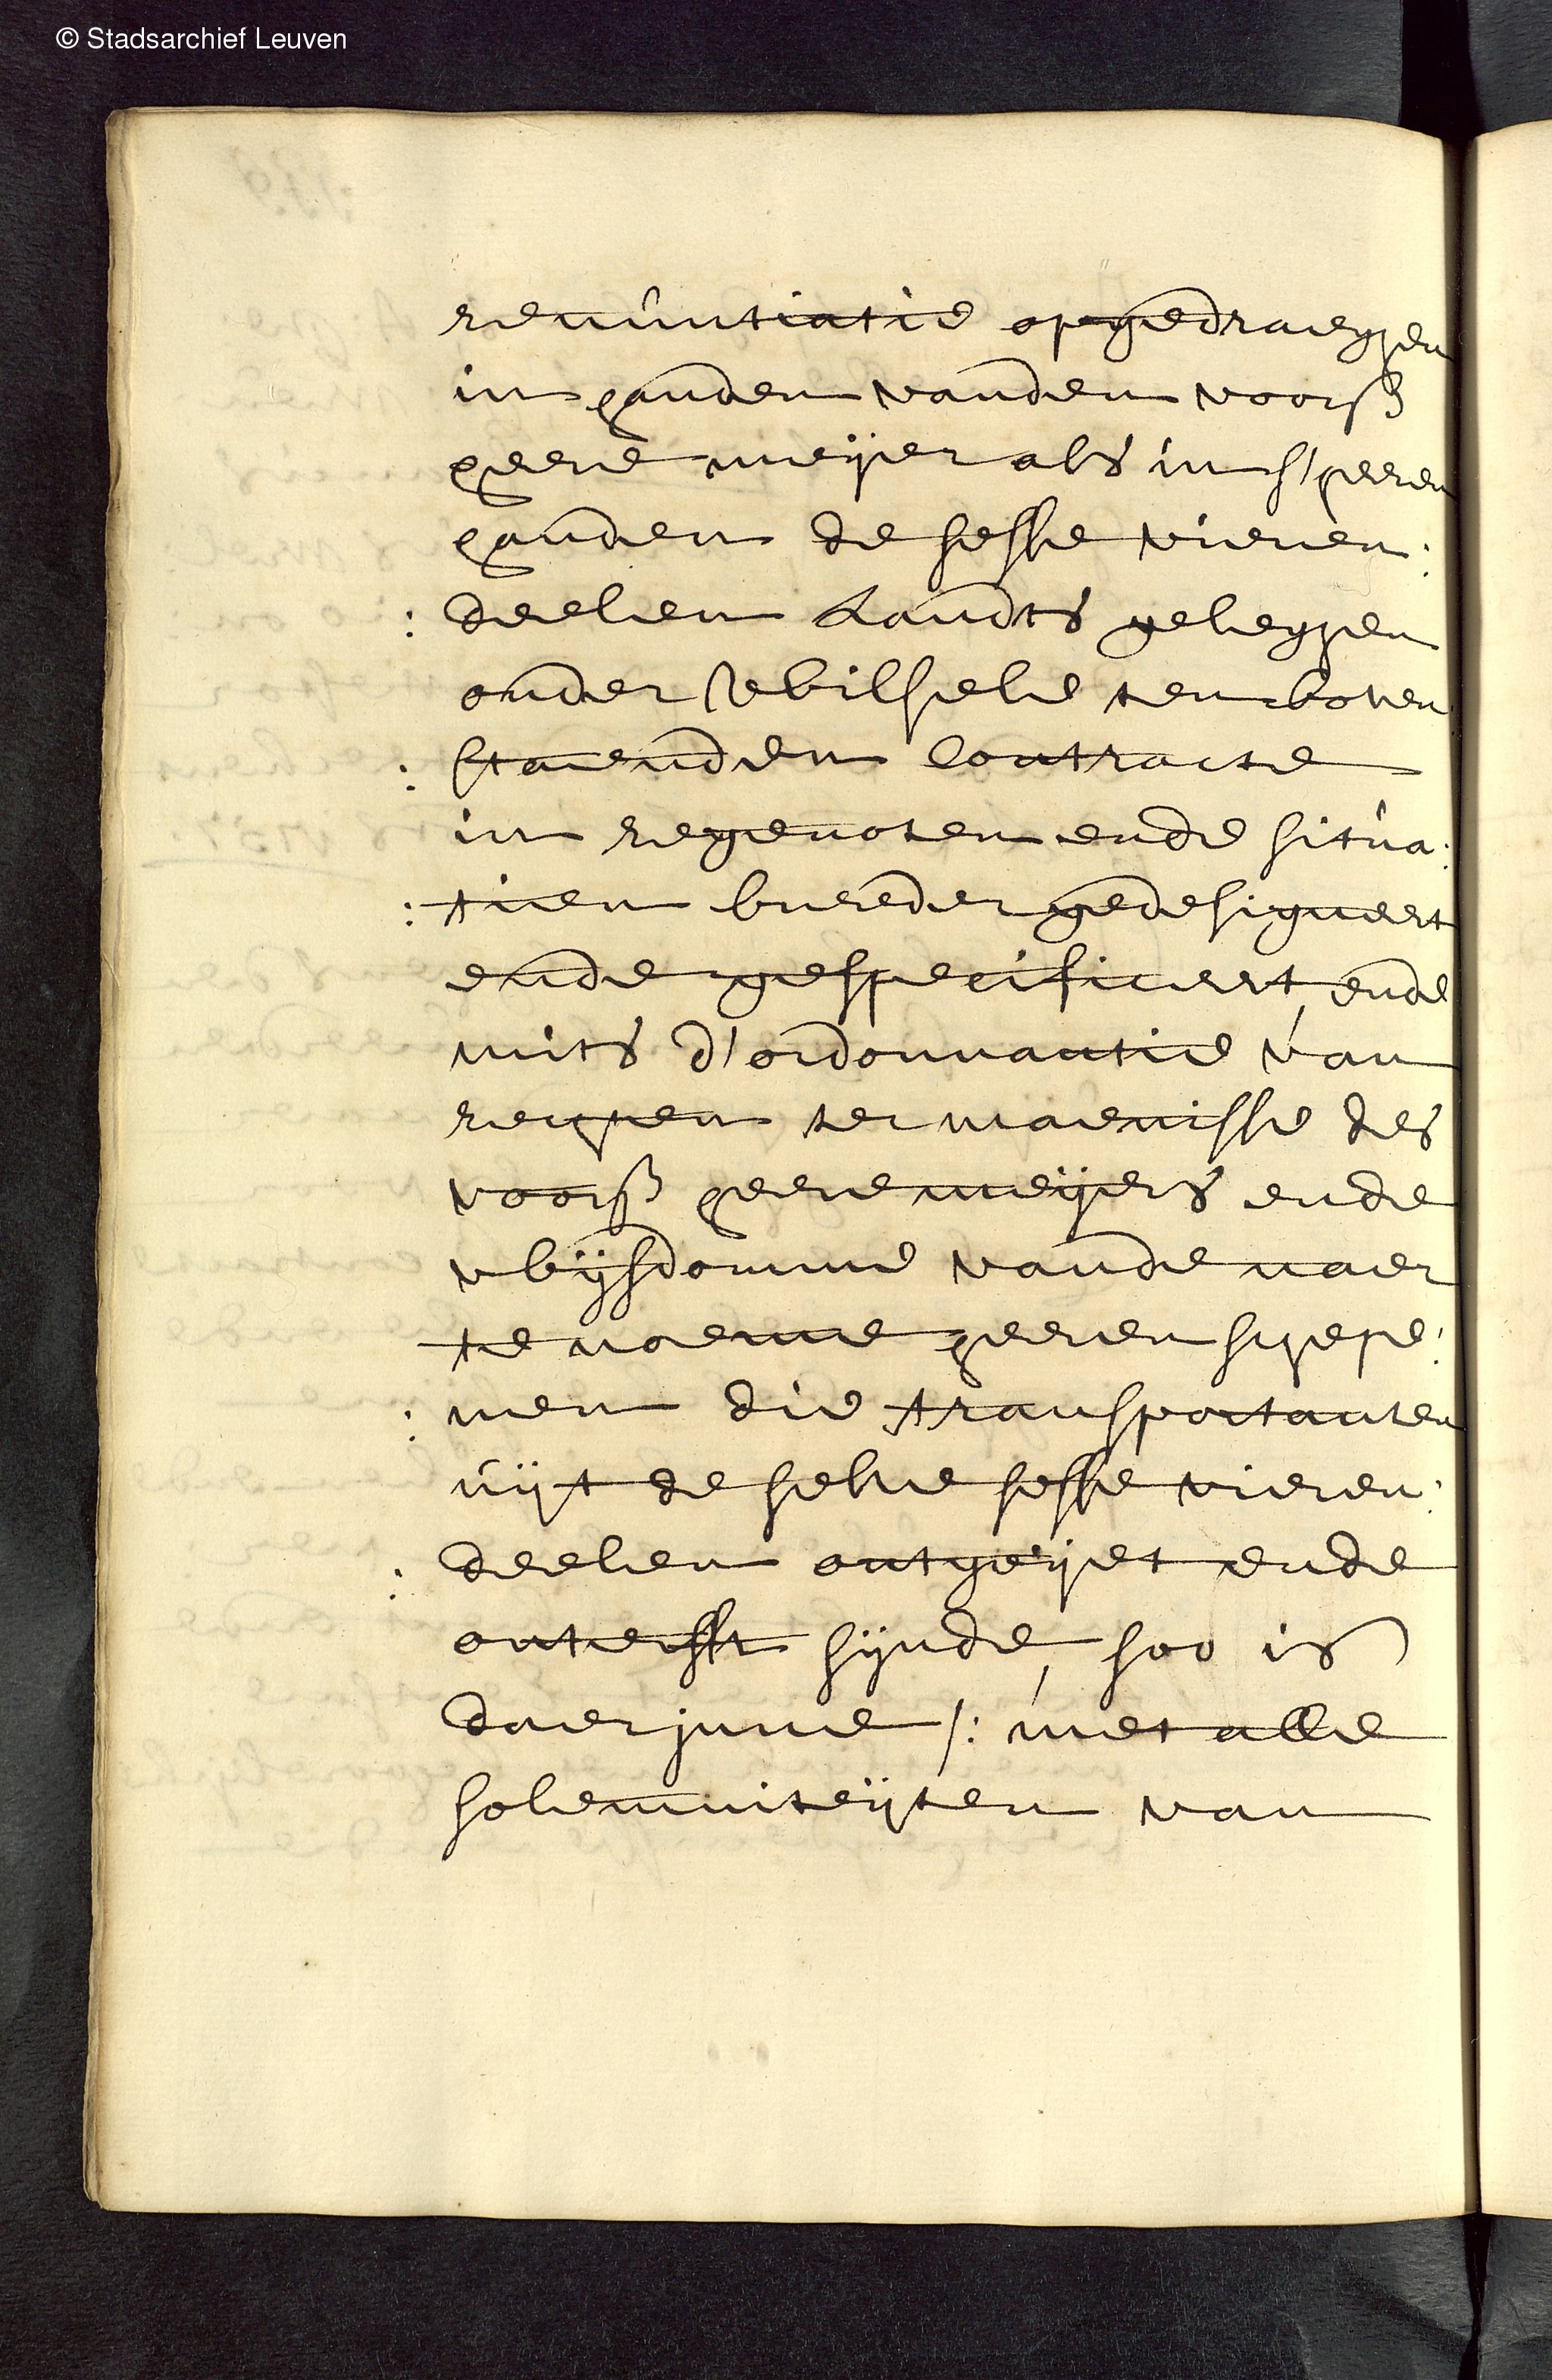 © Stadsarchief Leuven
renúntiatie opgedraegen
in handen vanden voors
heere meijer als in s'heeren
handen de sesse vieren:
: deelen Landts gelegen
onder Wilsele ten boven
: staenden Contracte
in regenoten ende sitúa:
: tien breeder gedesigneert
ende gespecificeert, ende
mits d'ordonnantie van
rechten ter maenisse des
voors heere meijers ende
wijsdomme vande naer
te noeme heeren schepe:
: nen die transportanten
úijt de selve sesse vieren:
: deelen ontgoijt ende
onterfft sijnde, soo is
daerinne /: met alle
solemniteijten van